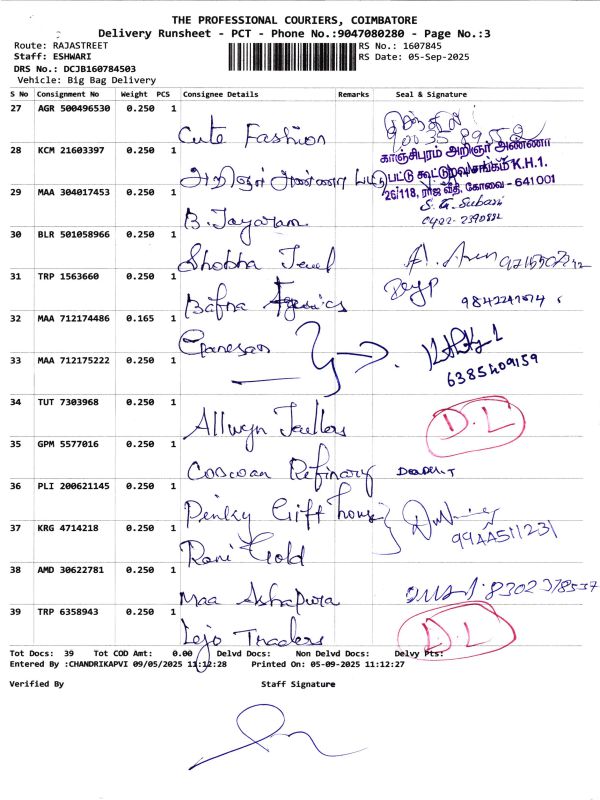 THE PROFESSIONAL COURIERS, COIMBATORE
Delivery Runsheet - PCT - Phone No.:9047080280 - Page No.:3
Route: RAJASTREET RS No.: 1607845
Staff: ESHWARI RS Date: 05-Sep-2025
DRS No.: DCJB160784503
Vehicle: Big Bag Delivery
S No Consignment No Weight PCS Consignee Details Remarks Seal & Signature
27 AGR 500496530 0.250 1 Cute Fashion
28 KCM 21603397 0.250 1 அறிஞர் அண்ணா பட்டு
காஞ்சிபுரம் அறிஞர் அண்ணா
பட்டு கூட்டுறவு சங்கம் K.H.1.
26/118, ராஜ வீதி, கோவை - 641 001
29 MAA 304017453 0.250 1 B. Jayaram
0422-2390832
30 BLR 501058966 0.250 1 Shobha Jewel
31 TRP 1563660 0.250 1 Bafna Agencies
32 MAA 712174486 0.165 1 Ganesan
33 MAA 712175222 0.250 1
6385409159
34 TUT 7303968 0.250 1 Allwyn Jewllers D.L
35 GPM 5577016 0.250 1 Coswan Refinary
36 PLI 200621145 0.250 1 Pinky Giff house
37 KRG 4714218 0.250 1 Rani Gold
9944511231
38 AMD 30622781 0.250 1 Maa Ashapura 8302378537
39 TRP 6358943 0.250 1 Lejo Traders D.L
Tot Docs: 39 Tot COD Amt: 0.00 Delvd Docs: Non Delvd Docs: Delvy Pts:
Entered By :CHANDRIKAPVI 09/05/2025 11:12:28 Printed On: 05-09-2025 11:12:27
Verified By Staff Signature